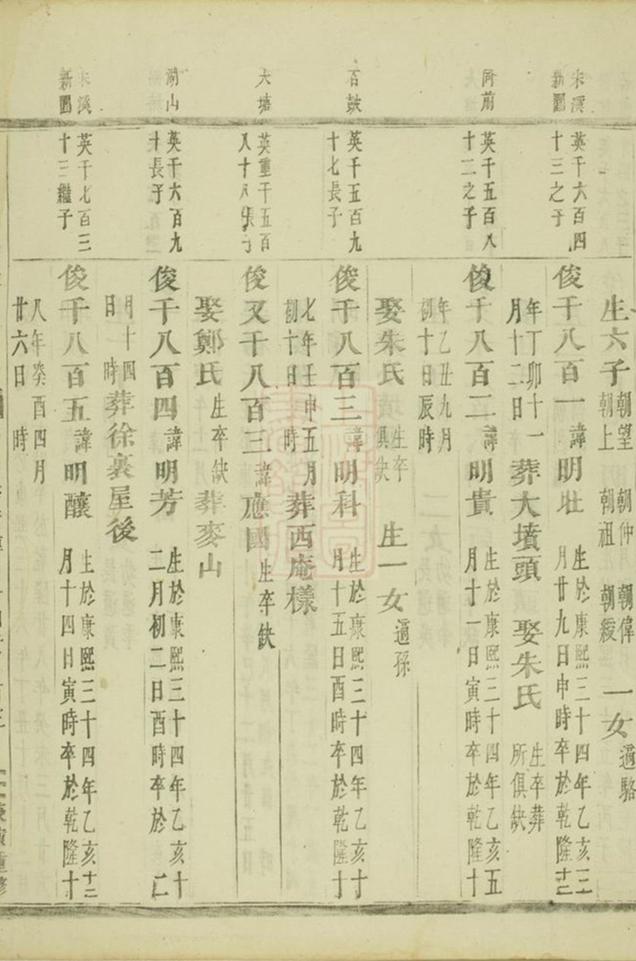 生六子 朝望 朝上 朝仲 朝祖 朝偉 朝綬 一女 適駱
朱溪 新園 英千六百四十三之子 俊千八百一 諱明壯 生於康熙三十四年乙亥三月廿九日申時卒於乾隆十二
年丁卯十一月十二日 葬大墳頭 娶朱氏 生卒葬所俱缺
前 英千五百八十二之子 俊千八百二 諱明貴 生於康熙三十四年乙亥五月十一日寅時卒於乾隆十
年乙丑九月初十日辰時
娶朱氏 生卒俱缺 生一女 適孫
鼓 英千五百九十七長子 俊千八百三 諱明科 生於康熙三十四年乙亥十月十五日酉時卒於乾隆十
七年壬申五月初十日 時 葬西庵樣
大塘 英重千五百八十八長子 俊又千八百三 諱應國 生卒缺
娶鄭氏 生卒缺 葬麥山
湖山 英千六百九十長子 俊千八百四 諱明芳 生於康熙三十四年乙亥十二月初二日酉時卒於 二
月十四日 時 葬徐裏屋後
朱溪 新園 英千七百三十三繼子 俊千八百五 諱明釀 生於康熙三十四年乙亥十二月十四日寅時卒於乾隆十
八年癸酉四月廿六日 時